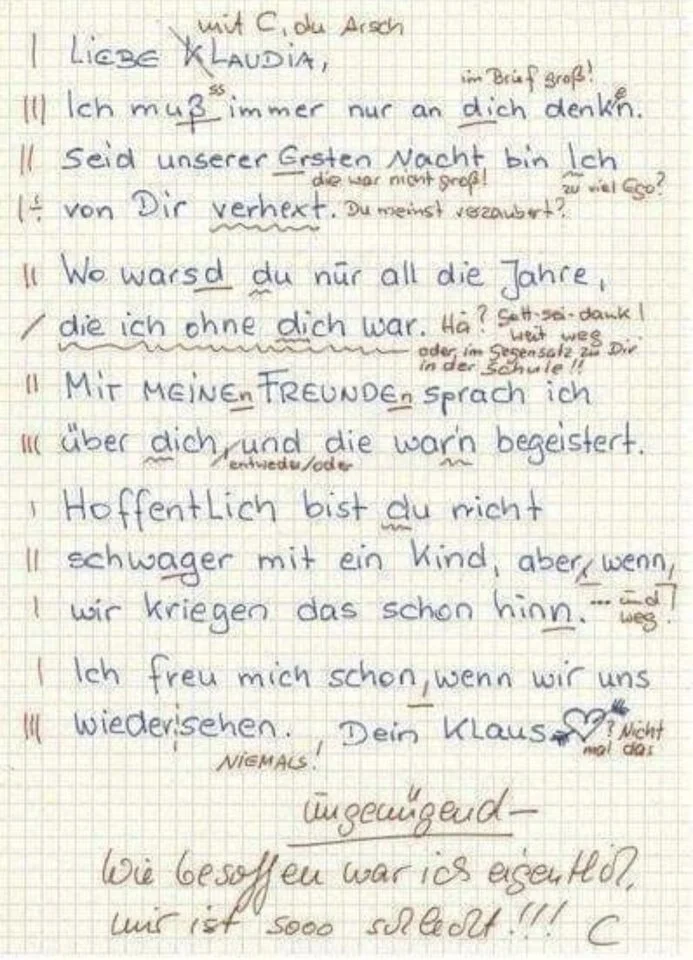 mit C, du Arsch
| LIEBE KLAUDIA,
im Brief groß!
||| Ich muß immer nur an dich denk'n.
ss
e
|| seid unserer Ersten Nacht bin Ich
die war nicht groß! zu viel Ego?
von Dir verhext. Du meinst verzaubert?
|| Wo warsd du nur all die Jahre,
/ die ich ohne dich war. Hä? Gott-sei-dank!
weit weg
oder im Gegensatz zu Dir
in der Schule!!
|| Mit MEINEn FREUNDEn sprach ich
||| über dich, und die war'n begeistert.
entweder/oder
| Hoffentlich bist du nicht
|| schwager mit ein Kind, aber, wenn,
| wir kriegen das schon hinn. ... und
weg!
| Ich freu mich schon, wenn wir uns
||| wiedersehen. Dein Klaus ? Nicht
mal das
NIEMALS!
ungenügend –
Wie besoffen war ich eigentlich,
mir ist sooo schlecht!!! C